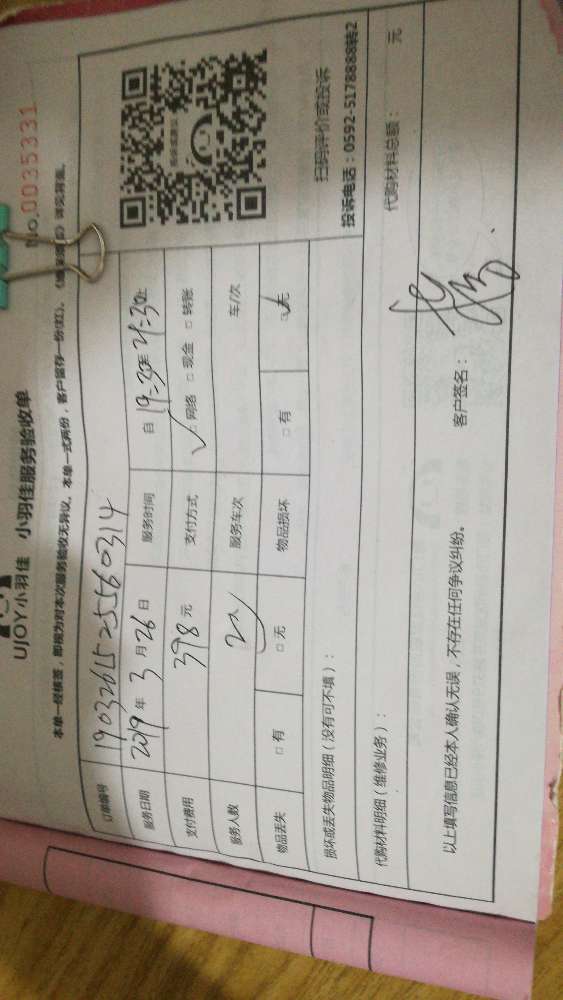 No.0035331
UJOY小羽佳 小羽佳服务验收单
本单一经核签，即视为对本次服务验收无异议。本单一式两份，客户留存一份(红)。
订单编号 190326152556 0314
服务日期 2019年3月26日 服务时间 自19:30至21:30止
支付费用 398元 支付方式 □网络 □现金 □转账
服务人数 2人 服务车次 车/次
物品丢失 □有 □无 物品损坏 □有 □无
扫码评价或投诉
投诉电话：0592-5178888转2
损坏或丢失物品明细（没有可不填）：
代购材料明细（维修业务）： 代购材料总额： 元
以上填写信息已经本人确认无误，不存在任何争议纠纷。 客户签名：